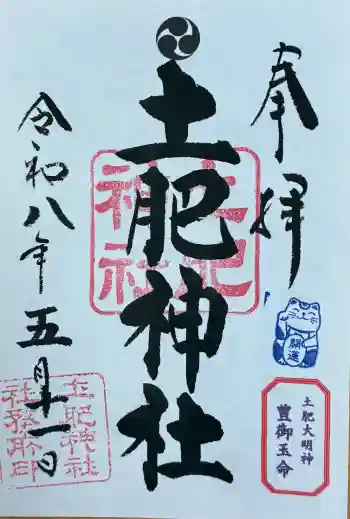 奉拝
開運
土肥大明神
豊御玉命
土肥神社
土肥神社
令和八年五月十一日
土肥神社
社務所印